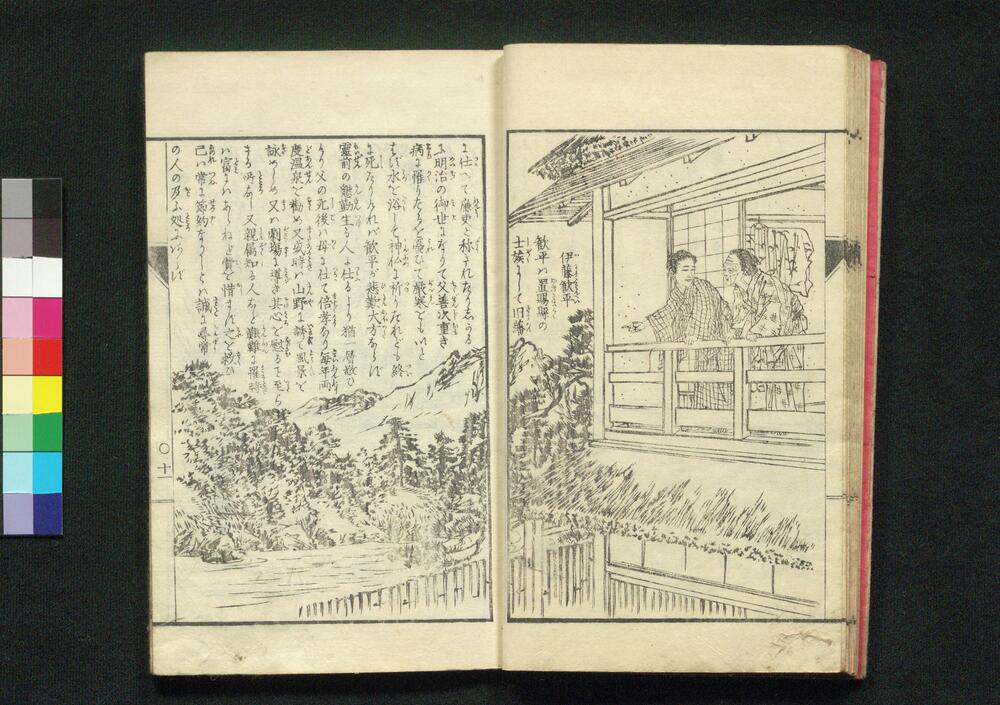 伊藤歓平
歓平ハ置賜県の
士族にして旧藩
に仕へて廉吏と称されたりしうる
に明治の御世になりて父善次重き
病に罹りたるを憂ひて厳寒をもいと
はず水を浴して神仏に祈りたれども終
に死たりけれバ歓平が悲歎大方ならず
霊前の勤生る人に仕るより猶一層敬ひ
より父の死後ハ母に仕て倍孝あり毎年両
度温泉を勧め又或時ハ山野に誘て風景を
詠めしめ又ハ劇場に導き其心を慰るて至ら
ざる所なし又親類知る人などの難に罹時
ハ富にハあらねど費を惜まず之を救ひ
己ハ常に節約なりしとハ誠に尋常
の人の及ぶ処にあらず
〇十一